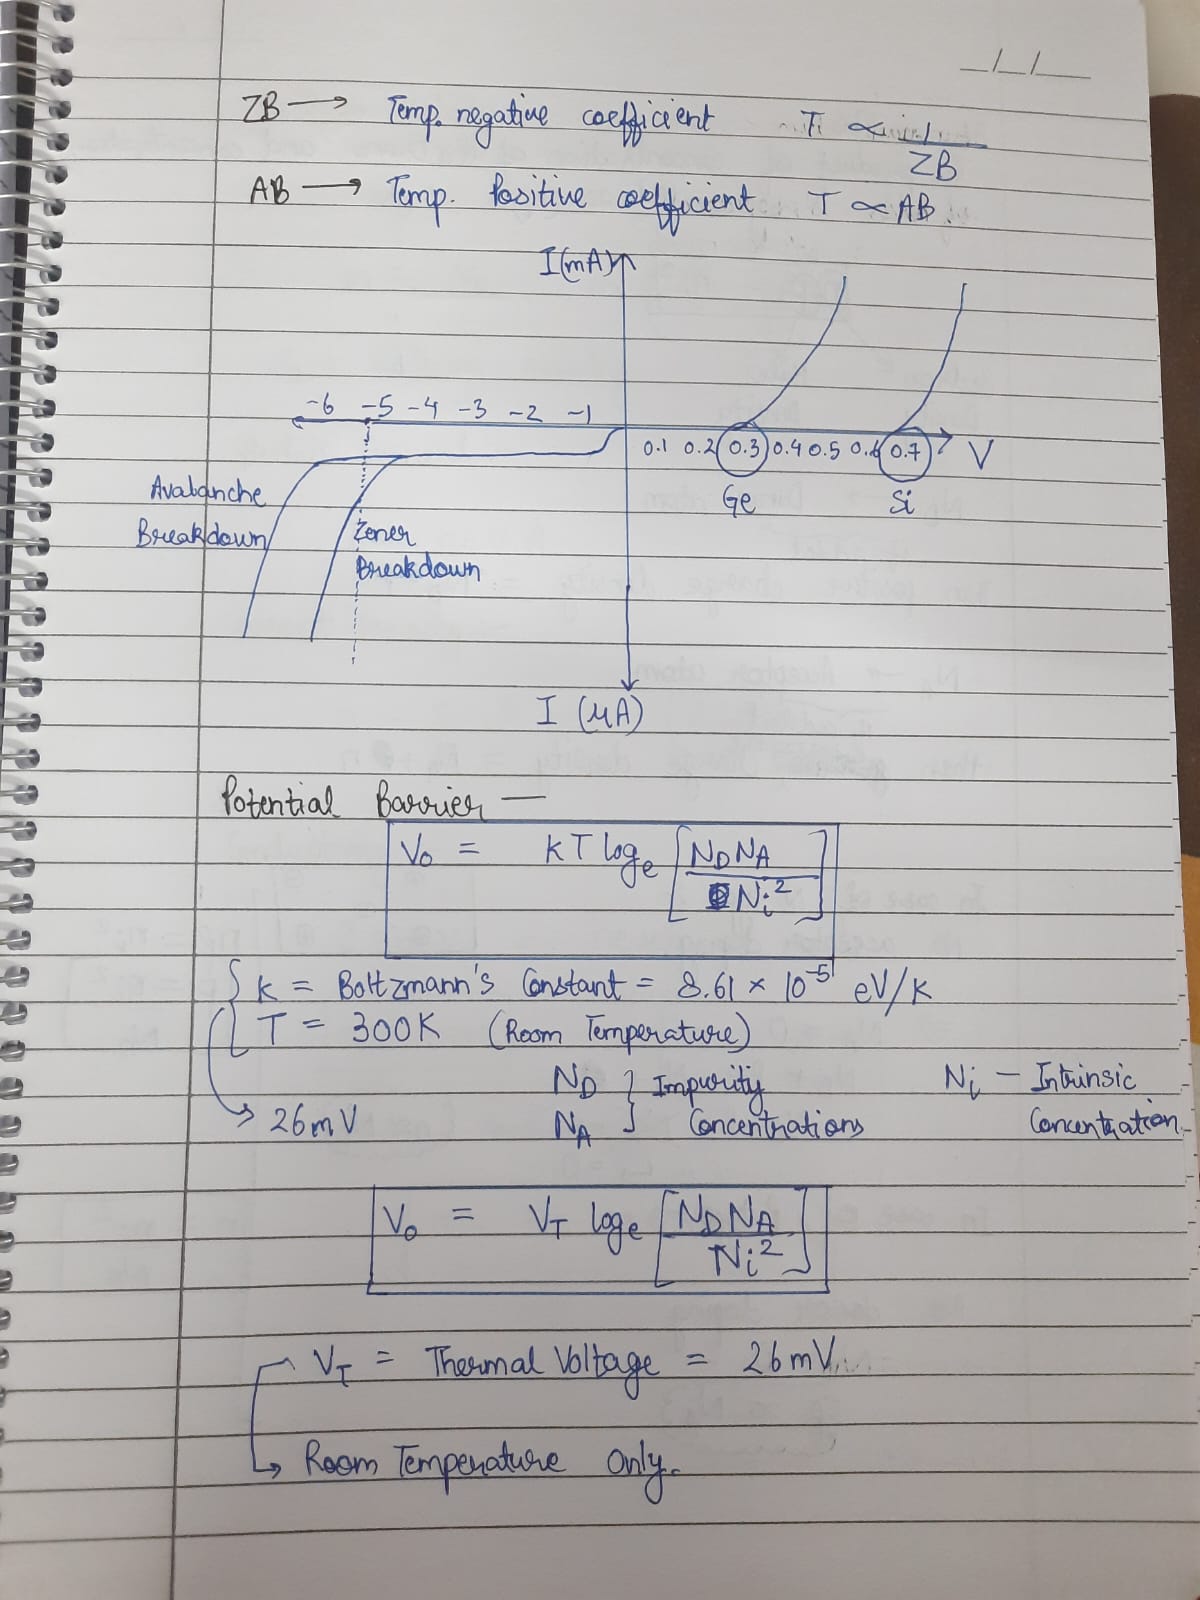 _/_/__
ZB → Temp. negative coefficient T ∝ 1/ZB
AB → Temp. Positive coefficient T ∝ AB.
I(mA)
-6 -5 -4 -3 -2 -1
0.1 0.2 0.3 0.4 0.5 0.6 0.7 V
Ge Si
Avalanche
Breakdown
Zener
Breakdown
I (μA)
Potential Barrier —
V₀ = kT logₑ [N_D N_A / Nᵢ²]
k = Boltzmann's Constant = 8.61 × 10⁻⁵ eV/K
T = 300K (Room Temperature)
→ 26mV
N_D } Impurity
N_A } Concentrations
Nᵢ – Intrinsic
Concentration.
V₀ = V_T logₑ [N_D N_A / Nᵢ²]
V_T = Thermal Voltage = 26mV
→ Room Temperature Only.